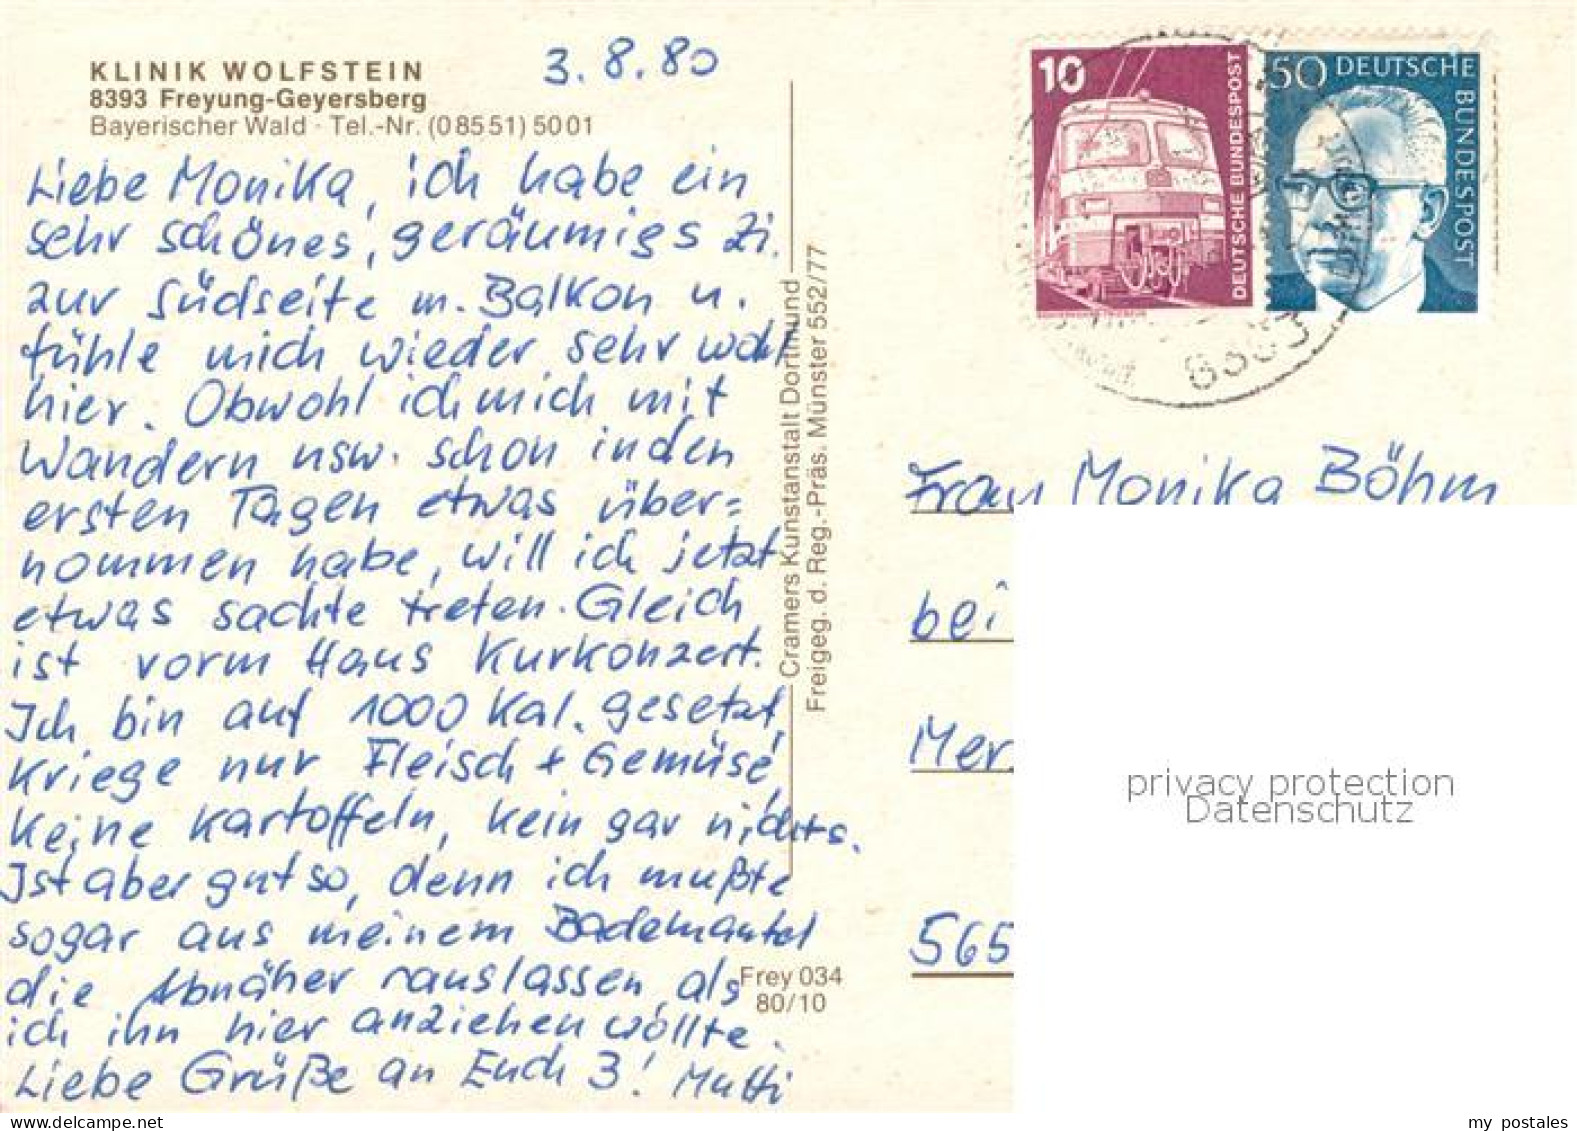 3.8.80
KLINIK WOLFSTEIN
8393 Freyung-Geyersberg
Bayerischer Wald · Tel.-Nr. (08551) 5001
Liebe Monika, ich habe ein
sehr schönes, geräumigs Zi.
zur Südseite m. Balkon u.
fühle mich wieder sehr wohl
hier. Obwohl ich mich mit
Wandern usw. schon in den
ersten Tagen etwas über=
nommen habe, will ich jetzt
etwas sachte treten. Gleich
ist vorm Haus Kurkonzert.
Ich bin auf 1000 Kal. gesetzt,
kriege nur Fleisch + Gemüse,
keine Kartoffeln, kein gar nichts.
Ist aber gut so, denn ich mußte
sogar aus meinem Bademantel
die Abnäher rauslassen, als
ich ihn hier anziehen wollte.
Liebe Grüße an Euch 3! Mutti
Cramers Kunstanstalt Dortmund
Freigeg. d. Reg.-Präs. Münster 552/77
Frey 034
80/10
10
DEUTSCHE BUNDESPOST
50 DEUTSCHE
BUNDESPOST
Frau Monika Böhm
bei
Mer
565
privacy protection
Datenschutz
my postales